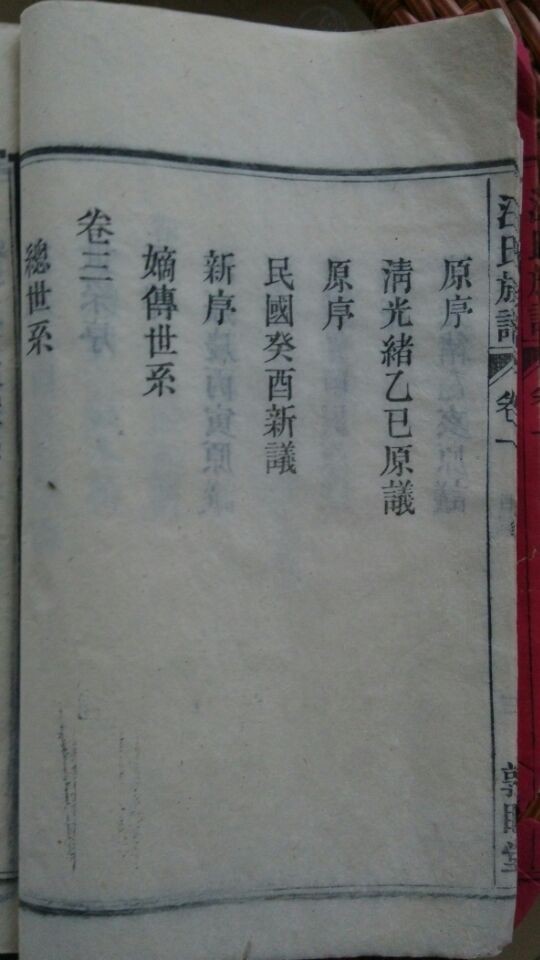 原序
清光緒乙巳原議
原序
民國癸酉新議
新序
嫡傳世系
卷三
總世系
汪氏族譜
卷一
敦睦堂